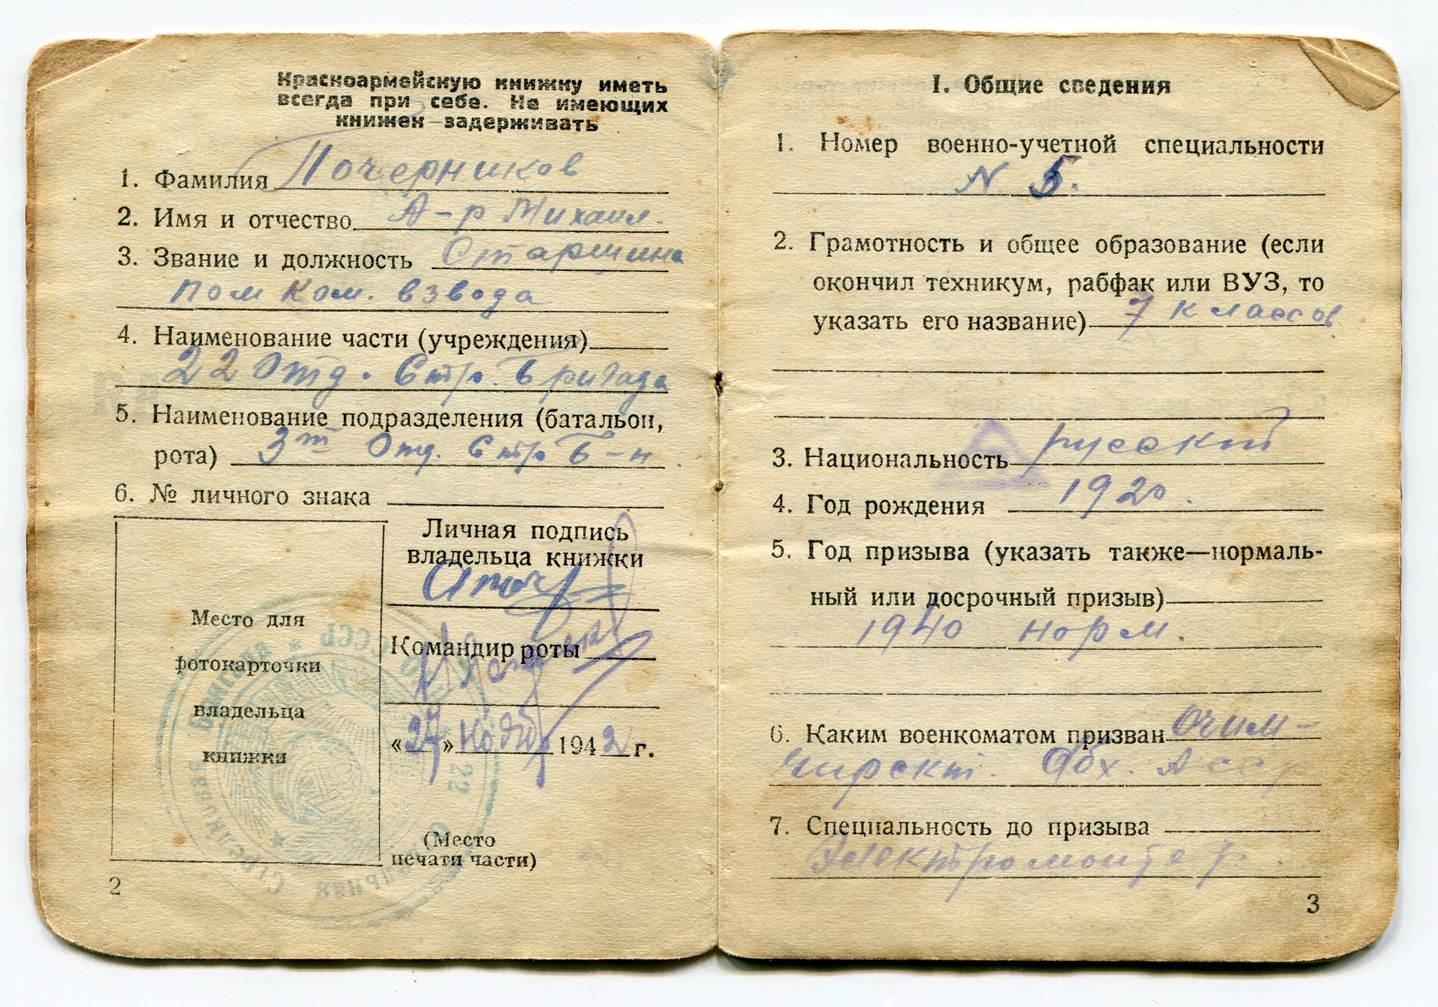 Красноармейскую книжку иметь
всегда при себе. Не имеющих
книжек задерживать
1. Фамилия Почерников
2. Имя и отчество А-р Михаил.
3. Звание и должность Старшина
пом ком. взвода
4. Наименование части (учреждения)
22 Отд. Стр. Бригада
5. Наименование подразделения (батальон,
рота) 3й Отд. Стр Б-н.
6. № личного знака
Место для
фотокарточки
владельца
книжки
Личная подпись
владельца книжки
Командир роты
«27» Нояб 1942 г.
(Место
печати части)
2
I. Общие сведения
1. Номер военно-учетной специальности
N 5.
2. Грамотность и общее образование (если
окончил техникум, рабфак или ВУЗ, то
указать его название) 7 классов
3. Национальность русский
4. Год рождения 1920.
5. Год призыва (указать также—нормаль-
ный или досрочный призыв)
1940 норм.
6. Каким военкоматом призван Очим-
чирскт. Абх. Асср
7. Специальность до призыва
Электромонтер.
3